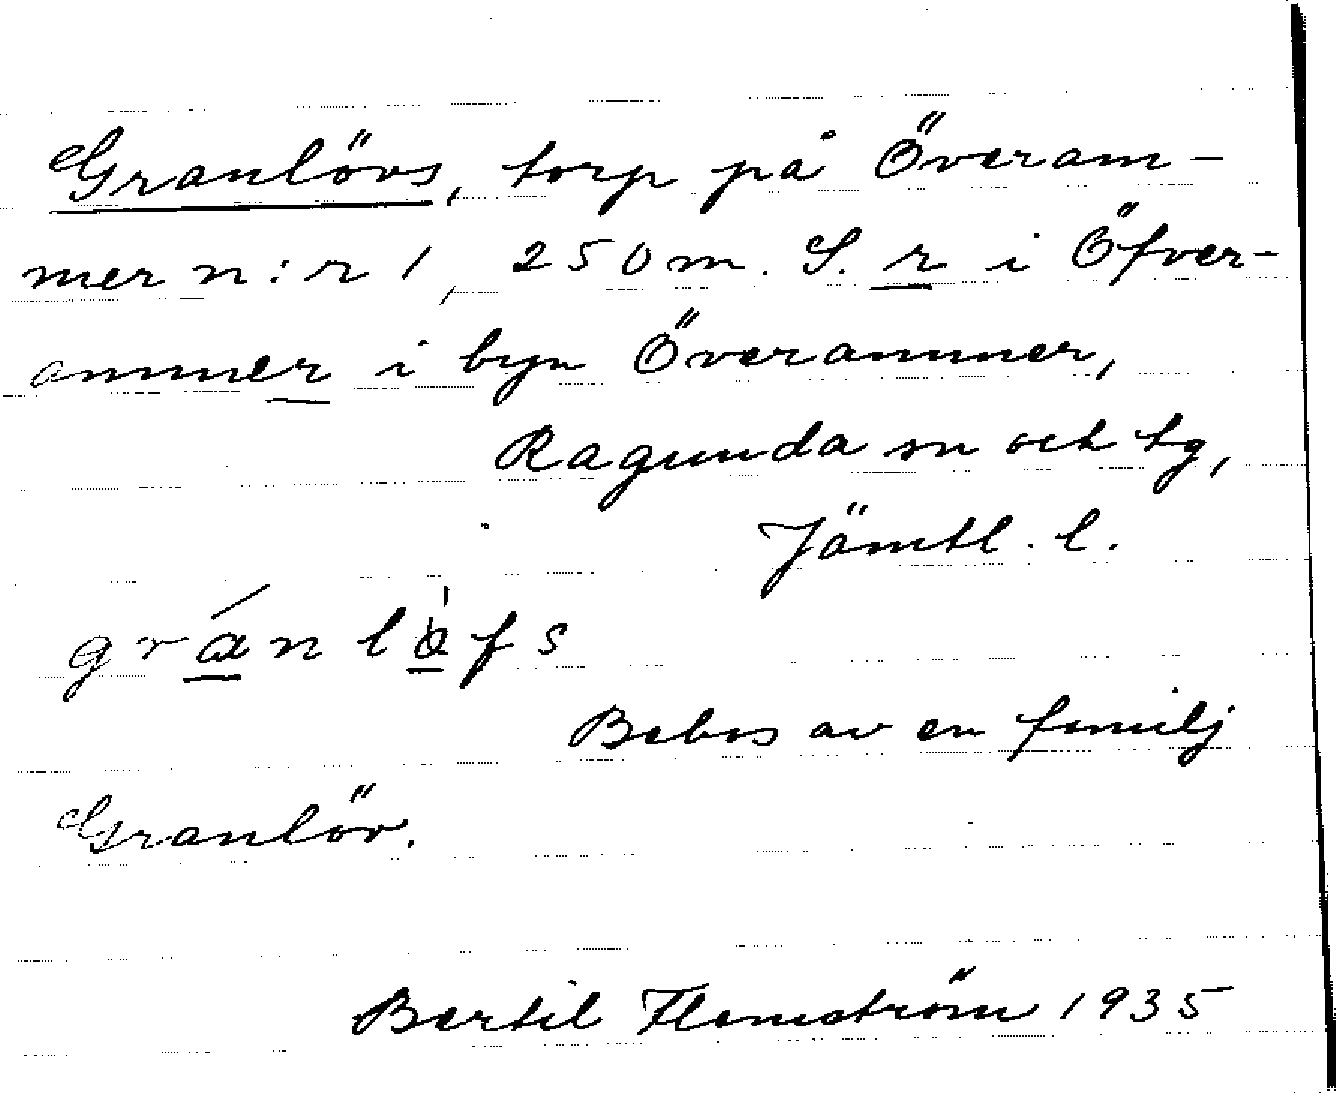 Granlövs, torp på Överam-
mer n:r 1, 250 m. S. r i Öfver-
ammer i byn Överammer,
Ragunda sn och tg,
Jämtl. l.
gránlòfs
Bebos av en familj
Granlöv.
Bertil Flemström 1935